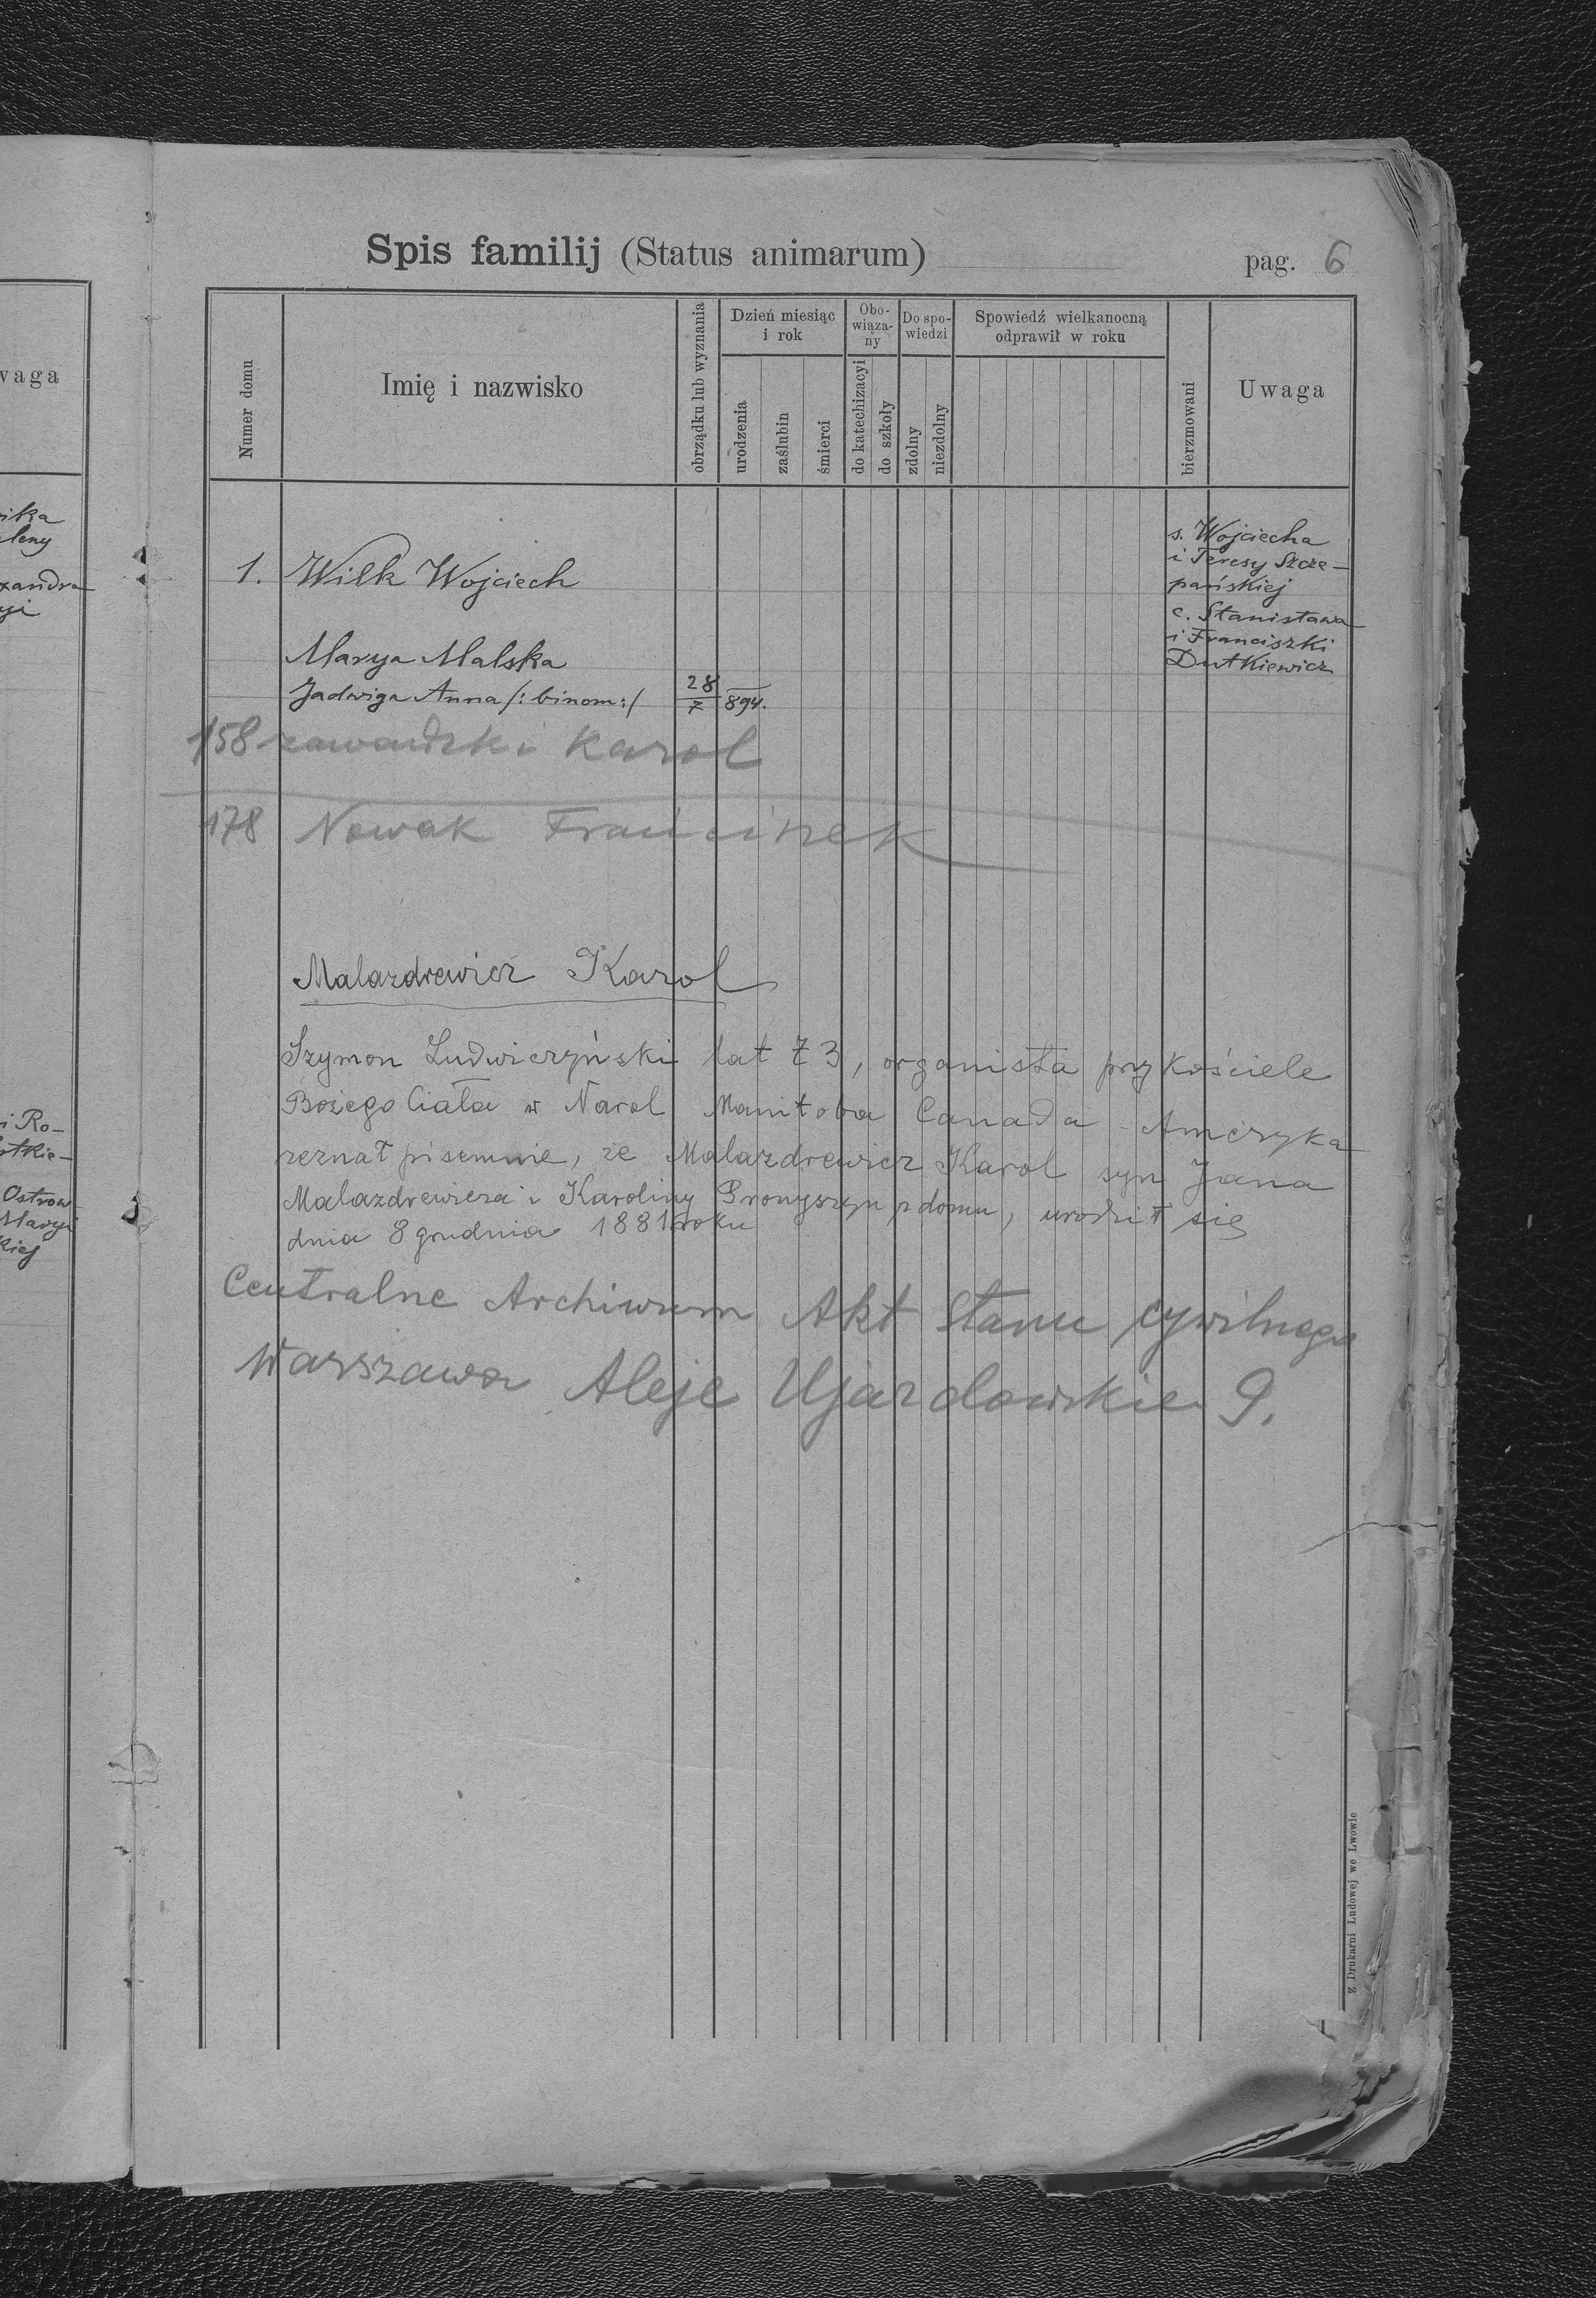 waga
ika
leny
xandra
yi
i Ro-
otkie-
Ostrow
Marys
kiej
Spis familij (Status animarum)
pag. 6
Numer domu
Imię i nazwisko
obrządku lub wyznania
Dzień miesiąc
i rok
urodzenia
zaślubin
śmierci
Obo-
wiąza-
ny
do katechizacyi
do szkoły
Do spo-
wiedzi
zdolny
niezdolny
Spowiedź wielkanocną
odprawił w roku
bierzmowani
Uwaga
1. Wilk Wojciech
s. Wojciecha
i Teresy Szcze-
pańskiej
Marya Malska
c. Stanisława
i Franciszki
Dutkiewicz
Jadwiga Anna /: binom :/ 28/7 894.
158 zawadzki Karol
178 Nowak
Malazdrewicz Karol
Szymon Ludwiczyński lat 73, organista przy kościele
Bożego Ciała w Narol Manitoba Canada - Ameryka
zeznał pisemnie, że Malazdrewicz Karol syn Jana
Malazdrewicza i Karoliny Pronyszyn z domu, urodził się
dnia 8 grudnia 1881 roku
Centralne Archiwum Akt Stanu cywilnego
Warszawa Aleje Ujazdowskie 9.
Z Drukarni Ludowej we Lwowie